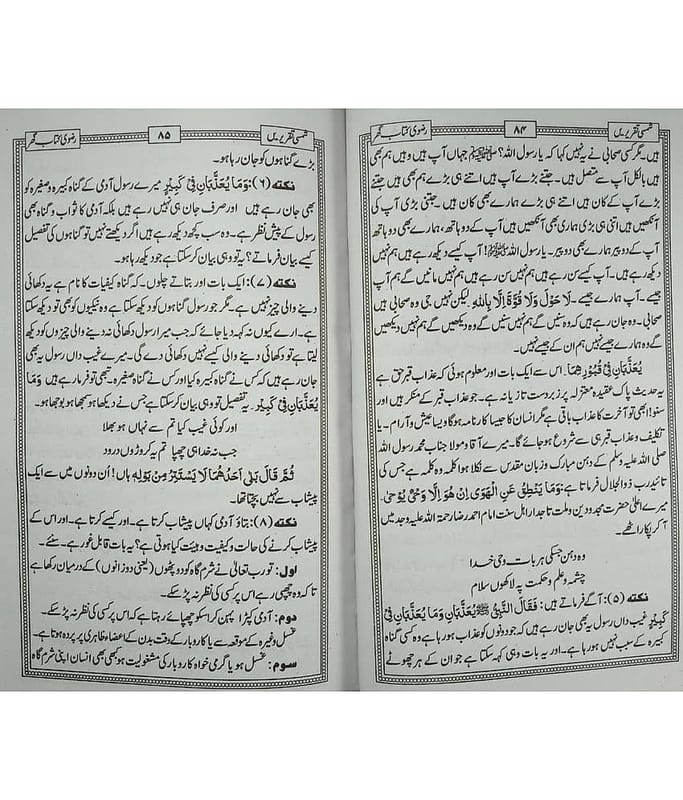 شمسی تقریریں ۸۴ رضوی کتاب گھر
ہیں۔ مگر کسی صحابی نے یہ نہیں کہا کہ یا رسول اللہ؟ ﷺ جہاں آپ ہیں وہیں ہم بھی
ہیں بالکل آپ سے متصل ہیں۔ جتنے بڑے آپ ہیں اتنے ہی بڑے ہم بھی ہیں جتنے
بڑے آپ کے کان ہیں اتنے ہی بڑے ہمارے بھی کان ہیں۔ جتنی بڑی آپ کی
آنکھیں ہیں اتنی ہی بڑی ہماری بھی آنکھیں ہیں آپ کے دو ہاتھ، ہمارے بھی دو ہاتھ
آپ کے دو پیر ہمارے بھی دو پیر۔ یا رسول اللہ ﷺ! آپ کیسے دیکھ رہے ہیں ہم نہیں
دیکھ رہے ہیں۔ آپ کیسے سن رہے ہیں ہم نہیں سن رہے ہیں ہم نہیں مانیں گے ہم آپ
جیسے۔ آپ ہمارے جیسے۔ لَا حَوْلَ وَلَا قُوَّةَ اِلَّا بِاللهِ لیکن نہیں جی وہ صحابی ہیں
صحابی۔ وہ جان رہے ہیں کہ وہ سنیں گے ہم نہیں سنیں گے وہ دیکھیں گے ہم نہیں دیکھیں
گے وہ ہمارے جیسے نہیں ہم ان کے جیسے نہیں۔
یُعَذَّبَانِ فِیْ قُبُوْرِهِمَا۔ اس سے ایک بات اور معلوم ہوئی کہ عذاب قبر حق ہے
یہ حدیث پاک عقیدہ معتزلہ پر زبردست تازیانہ ہے۔ جو عذاب قبر کے منکر ہیں اور
سنو! ابھی تو آخرت کا عذاب باقی ہے مگر انسان کا جیسا کارنامہ ہوگا ویسا عیش و آرام۔ یا
تکلیف و عذاب قبر ہی سے شروع ہو جائے گا۔ میرے آقا و مولا جناب محمد رسول اللہ
صلی اللہ علیہ وسلم کے دہن مبارک و زبان مقدس سے نکلا ہوا کلمہ وہ کلمہ ہے جس کی
تائید رب ذوالجلال فرماتا ہے: وَمَا يَنْطِقُ عَنِ الْهَوٰى اِنْ هُوَ اِلَّا وَحْیٌ يُّوْحٰى۔
میرے اعلیٰ حضرت مجدد دین و ملت تاجدار اہل سنت امام احمد رضا رحمۃ اللہ علیہ وجد میں
آ کر پکار اٹھے۔
وہ دہن جسکی ہر بات وحی خدا
چشمۂ علم و حکمت پہ لاکھوں سلام
نکتہ (۵): آگے فرماتے ہیں: فَقَالَ النَّبِیُّ ﷺ يُعَذَّبَانِ وَمَا يُعَذَّبَانِ فِیْ
كَبِيْرٍ غیب داں رسول یہ بھی جان رہے ہیں کہ جو دونوں کو عذاب ہو رہا ہے وہ کسی گناہ
کبیرہ کے سبب نہیں ہو رہا ہے۔ اور یہ بات وہی کہہ سکتا ہے جو ان کے ہر چھوٹے
شمسی تقریریں ۸۵ رضوی کتاب گھر
بڑے گناہوں کو جان رہا ہو۔
نکتہ (۶): وَمَا يُعَذَّبَانِ فِیْ كَبِيْرٍ میرے رسول آدمی کے گناہ کبیرہ و صغیرہ کو
بھی جان رہے ہیں اور صرف جان ہی نہیں رہے ہیں بلکہ آدمی کا ثواب و گناہ بھی
رسول کے پیش نظر ہے۔ وہ سب کچھ دیکھ رہے ہیں اگر دیکھتے نہیں تو گناہوں کی تفصیل
کیسے بیان فرماتے؟ یہ تو وہی بیان کر سکتا ہے جو دیکھ رہا ہو۔
نکتہ (۷): ایک بات اور بتاتے چلوں۔ کہ گناہ کیفیات کا نام ہے یہ دکھائی
دینے والی چیز نہیں ہے۔ مگر جو رسول گناہوں کو دیکھ سکتا ہے وہ نیکیوں کو بھی تو دیکھ سکتا
ہے۔ ارے کیوں نہ کہہ دیا جائے کہ جب میرا رسول دکھائی نہ دینے والی چیزوں کو دیکھ
لیتا ہے تو دکھائی دینے والی کیسے نہیں دکھائی دے گی۔ میرے غیب داں رسول یہ بھی
جان رہے ہیں کہ کس نے گناہ کبیرہ کیا اور کس نے گناہ صغیرہ۔ تبھی تو فرما رہے ہیں وَمَا
يُعَذَّبَانِ فِیْ كَبِيْرٍ۔ یہ تفصیل تو وہی بیان کر سکتا ہے جس نے دیکھا ہو سمجھا ہو بوجھا ہو۔
اور کوئی غیب کیا تم سے نہاں ہو بھلا
جب نہ خدا ہی چھپا تم پہ کروڑوں درود
ثُمَّ قَالَ بَلٰى اَحَدُهُمَا لَا يَسْتَتِرُ مِنْ بَوْلِهٖ ہاں! اُن دونوں میں سے ایک
پیشاب سے نہیں بچتا تھا۔
نکتہ (۸): بتاؤ آدمی کہاں پیشاب کرتا ہے۔ اور کیسے کرتا ہے۔ اور اس کے
پیشاب کرنے کی حالت و کیفیت و ہیئت کیا ہوتی ہے؟ یہ بات قابل غور ہے۔ سنئے۔
اول: تو رب تعالیٰ نے شرم گاہ کو دو پٹھوں (یعنی دو رانوں) کے درمیان رکھا ہے
تا کہ وہ چھپی رہے اس پر کسی کی نظر نہ پڑ سکے۔
دوم: آدمی کپڑا پہن کر اسکو چھپائے رہتا ہے کہ اس پر کسی کی نظر نہ پڑ سکے۔
غسل وغیرہ کے موقعہ سے یا کاروبار کے وقت بدن کے اعضاء ظاہری پر پردہ ہوتا ہے۔
سوم: غسل ہو یا گرمی خواہ کاروبار کی مشغولیت ہو کبھی بھی انسان اپنی شرم گاہ